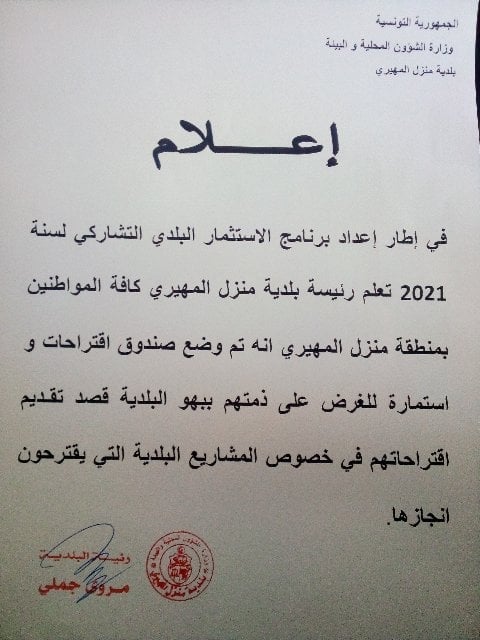 الجمهورية التونسية
وزارة الشؤون المحلية و البيئة
بلدية منزل المهيري
إعـــــلام
في إطار إعداد برنامج الاستثمار البلدي التشاركي لسنة
2021 تعلم رئيسة بلدية منزل المهيري كافة المواطنين
بمنطقة منزل المهيري انه تم وضع صندوق اقتراحات و
استمارة للغرض على ذمتهم ببهو البلدية قصد تقديم
اقتراحاتهم في خصوص المشاريع البلدية التي يقترحون
انجازها.
رئيسة البلديـة
مـروى جملي